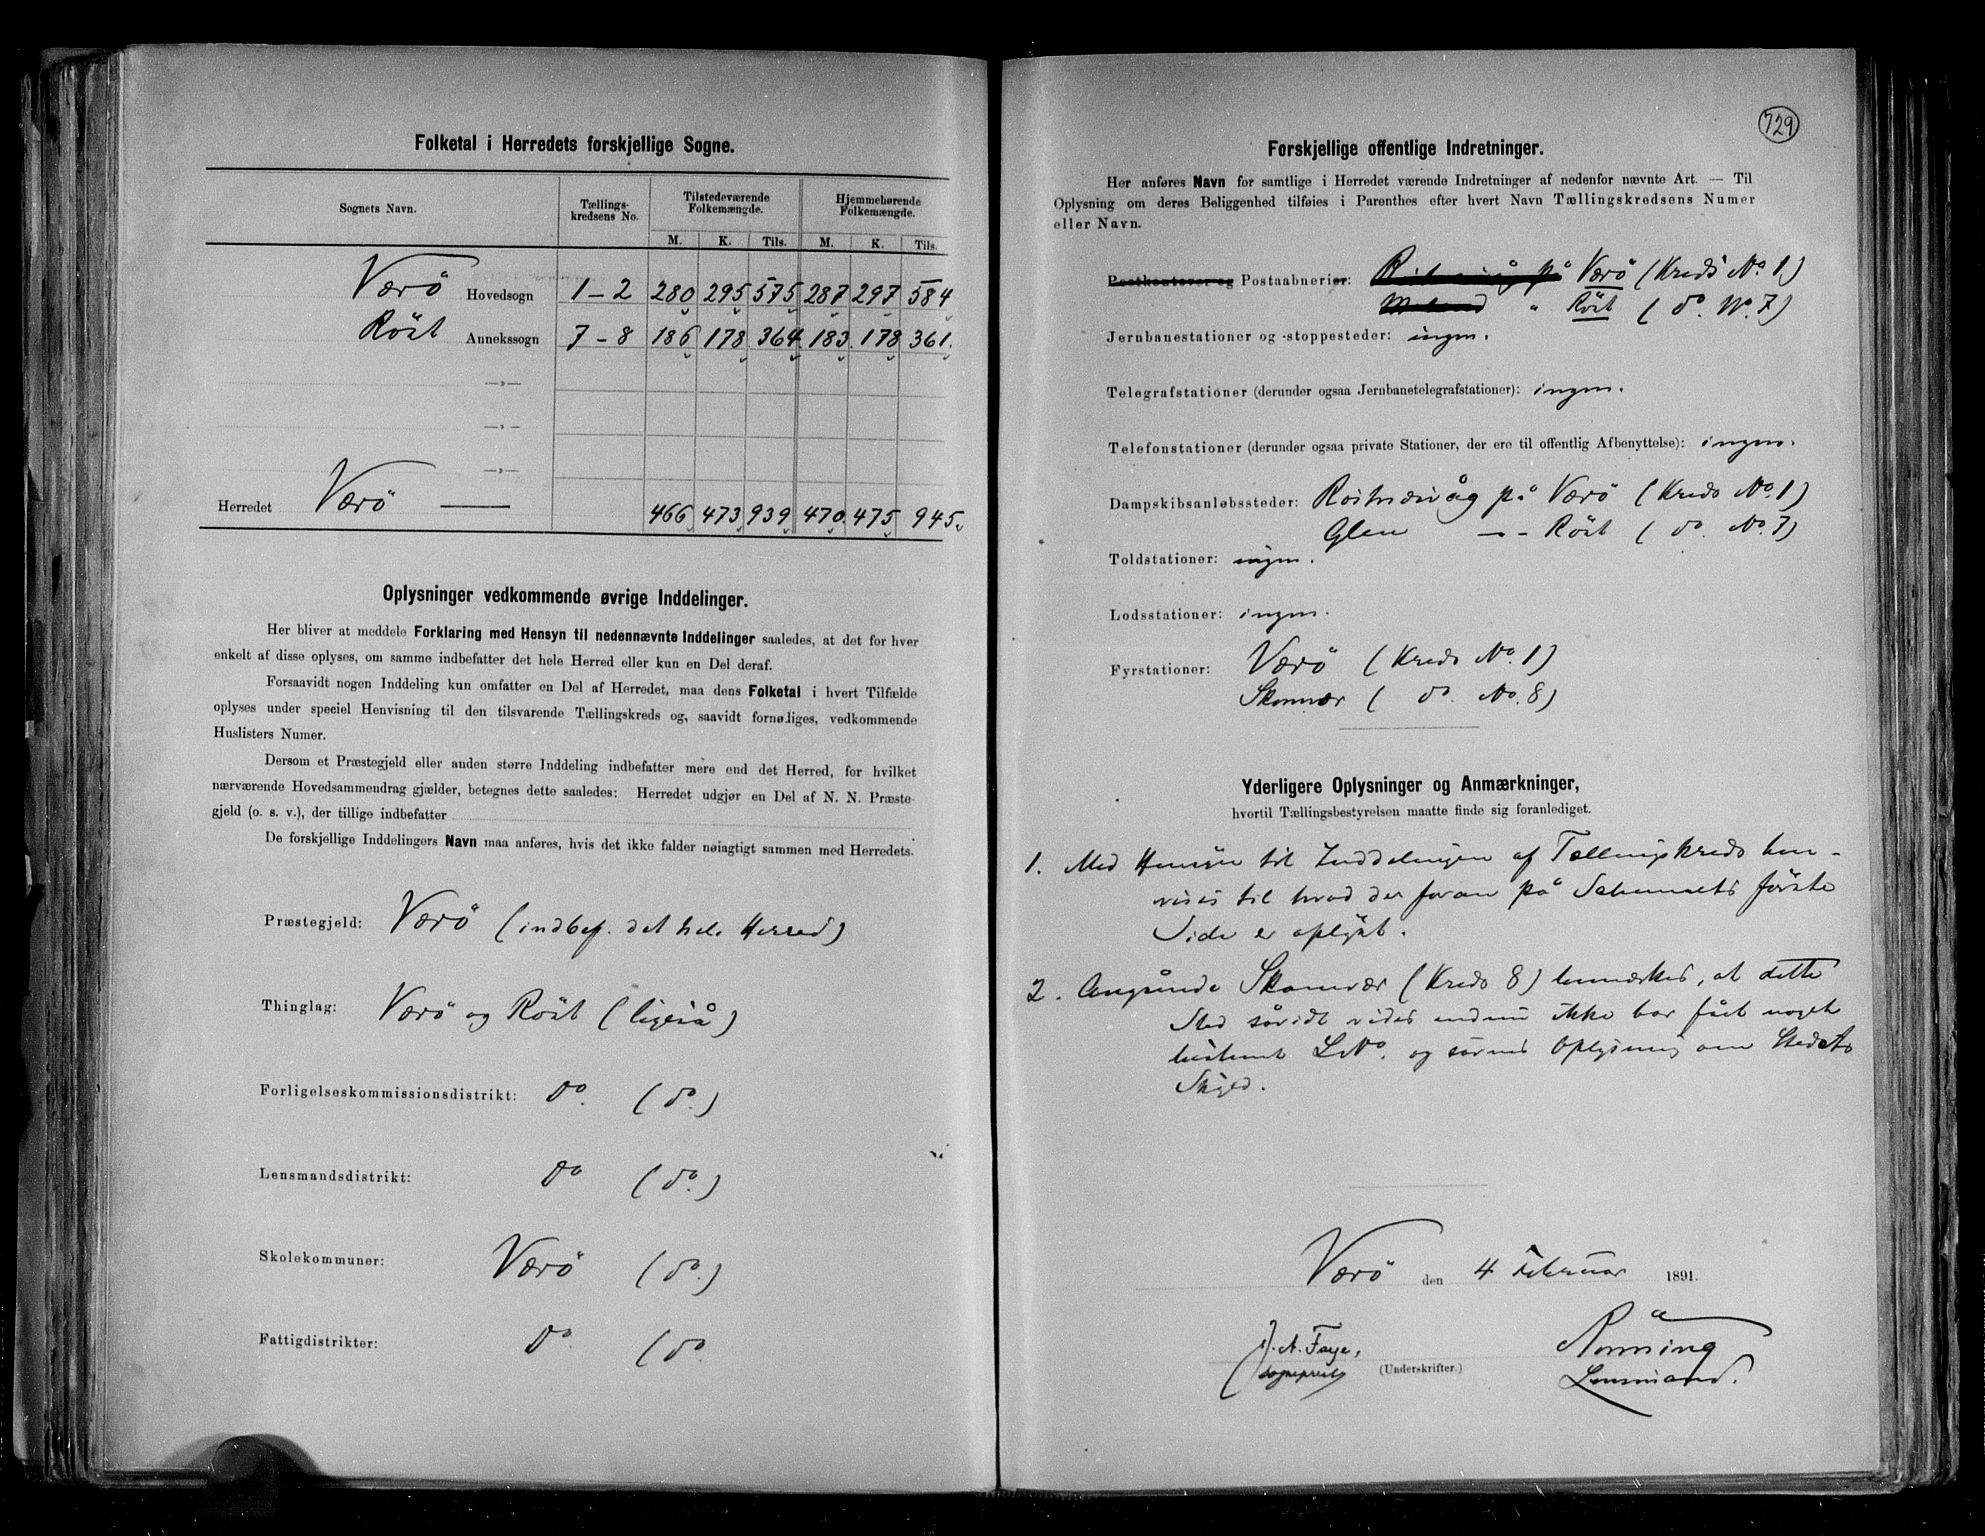 Folketal i Herredets forskjellige Sogne.
Sognets Navn. Tællings-kredsens No. Tilstedeværende Folkemængde. Hjemmehørende Folkemængde.
M. K. Tils. M. K. Tils.
Værö Hovedsogn 1-2 280 295 575 287 297 584
Röst Annekssogn 7-8 186 178 364 183 178 361
—»—
—»—
—»—
Herredet Værö 466 473 939 470 475 945
Oplysninger vedkommende øvrige Inddelinger.
Her bliver at meddele Forklaring med Hensyn til nedennævnte Inddelinger saaledes, at det for hver
enkelt af disse oplyses, om samme indbefatter det hele Herred eller kun en Del deraf.
Forsaavidt nogen Inddeling kun omfatter en Del af Herredet, maa dens Folketal i hvert Tilfælde
oplyses under speciel Henvisning til den tilsvarende Tællingskreds og, saavidt fornøliges, vedkommende
Huslisters Numer.
Dersom et Præstegjeld eller anden større Inddeling indbefatter mere end det Herred, for hvilket
nærværende Hovedsammendrag gjælder, betegnes dette saaledes: Herredet udgjør en Del af N. N. Præste-
gjeld (o. s. v.), der tillige indbefatter
De forskjellige Inddelingers Navn maa anføres, hvis det ikke falder nøiagtigt sammen med Herredets.
Præstegjeld: Værö (indbef. det hele Herred)
Thinglag: Værö og Röst (ligeså)
Forligelseskommissionsdistrikt: do. (do.)
Lensmandsdistrikt: do (do.)
Skolekommuner: Værö (do.)
Fattigdistrikter: do. (do.
729
Forskjellige offentlige Indretninger.
Her anføres Navn for samtlige i Herredet værende Indretninger af nedenfor nævnte Art. — Til
Oplysning om deres Beliggenhed tilføies i Parenthes efter hvert Navn Tællingskredsens Numer
eller Navn.
Postkontorer og Postaabnerier: på Værö (Kreds No. 1)
" Röst (do. No. 7)
Jernbanestationer og -stoppesteder: ingen.
Telegrafstationer (derunder ogsaa Jernbanetelegrafstationer): ingen.
Telefonstationer (derunder ogsaa private Stationer, der ere til offentlig Afbenyttelse): ingen.
Dampskibsanløbssteder: Röstnæsvåg på Værö (Kreds No. 1)
Glea - - Röst (do. No. 7)
Toldstationer: ingen.
Lodsstationer: ingen.
Fyrstationer: Værö (Kreds No. 1)
Skomvær (do. No. 8)
Yderligere Oplysninger og Anmærkninger,
hvortil Tællingsbestyrelsen maatte finde sig foranlediget.
1. Med Hensyn til Inddelingen af Tællingskreds hen-
vises til hvad der foran på Schemaets förste
Side er oplyst.
2. Angående Skomvær (Kreds 8) bemærkes, at dette
Sted såvidt vides endnu ikke har fået noget
bestemt L. No. og savnes Oplysning om Stedets
Skyld.
Værö den 4 Februar 1891.
J. A. Faye, Rönning
sogneprest (Underskrifter.) Lensmand.